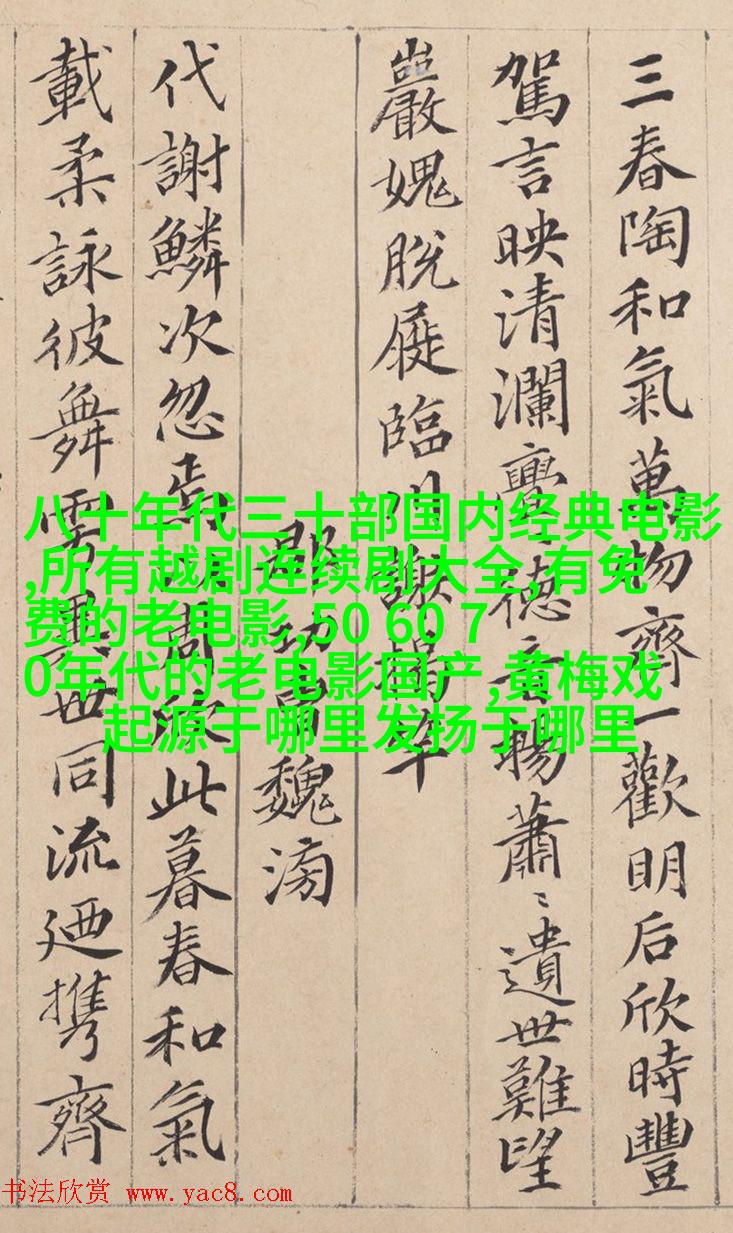 三春陶和氣萬物齊一歡明后欣時豐
駕言映清瀾亹〻德音暢蕭〻遺世難望
巖愧脫屣臨川謝揭竿
郡功曹魏滂
代謝鱗次忽焉以周欣此暮春和氣
載柔詠彼舞雩異世同流廼携齊
八十年代三十部国内经典电影
,所有越剧连续剧大全,有免
费的老电影,50 60 7
0年代的老电影国产,黄梅戏
起源于哪里发扬于哪里
书法欣赏 www.yac8.com